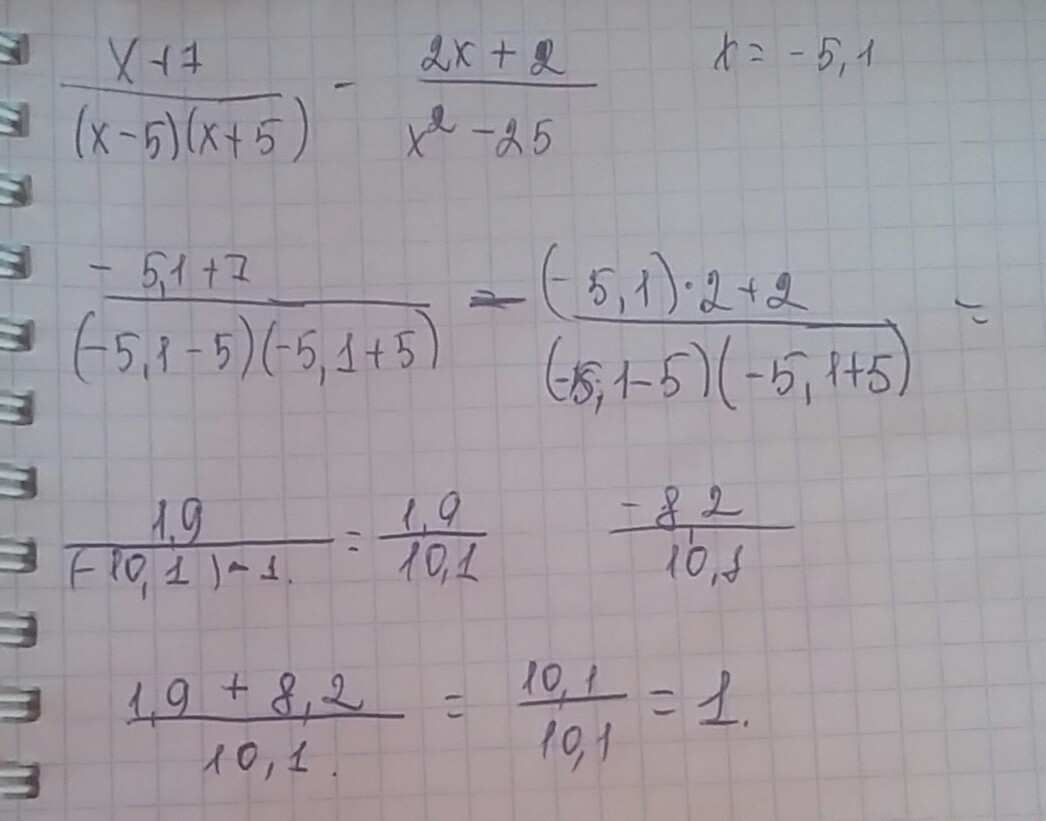 x+7 / (x-5)(x+5) - 2x+2 / x² -25 x = -5,1
-5,1+7 / (-5,1-5)(-5,1+5) - (-5,1)·2+2 / (-5,1-5)(-5,1+5) =
1,9 / (-10,1)-1. = 1,9 / 10,1 -8,2 / 10,1
1,9 + 8,2 / 10,1. = 10,1 / 10,1 = 1.